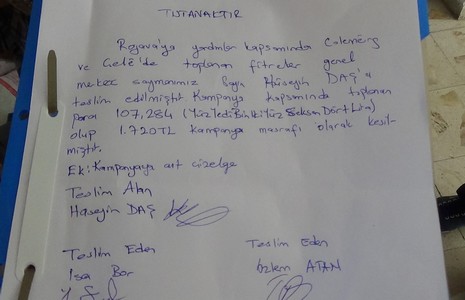 TUTANAKTIR
Rojava'ya yardımlar kapsamında Colemêrg
ve Gelê'de toplanan fitreler genel
merkez saymanımız Sayın Hüseyin DAŞ'a
teslim edilmiştir Kampanya kapsamında toplanan
para 107,284 (YüzYediBinİkiYüzSeksenDörtLira)
olup 1.720TL kampanya masrafı olarak kesil-
miştir.
Ek: Kampanyaya ait çizelge
Teslim Alan
Hüseyin DAŞ
Teslim Eden Teslim Eden
İsa Bor Özlem ATAN